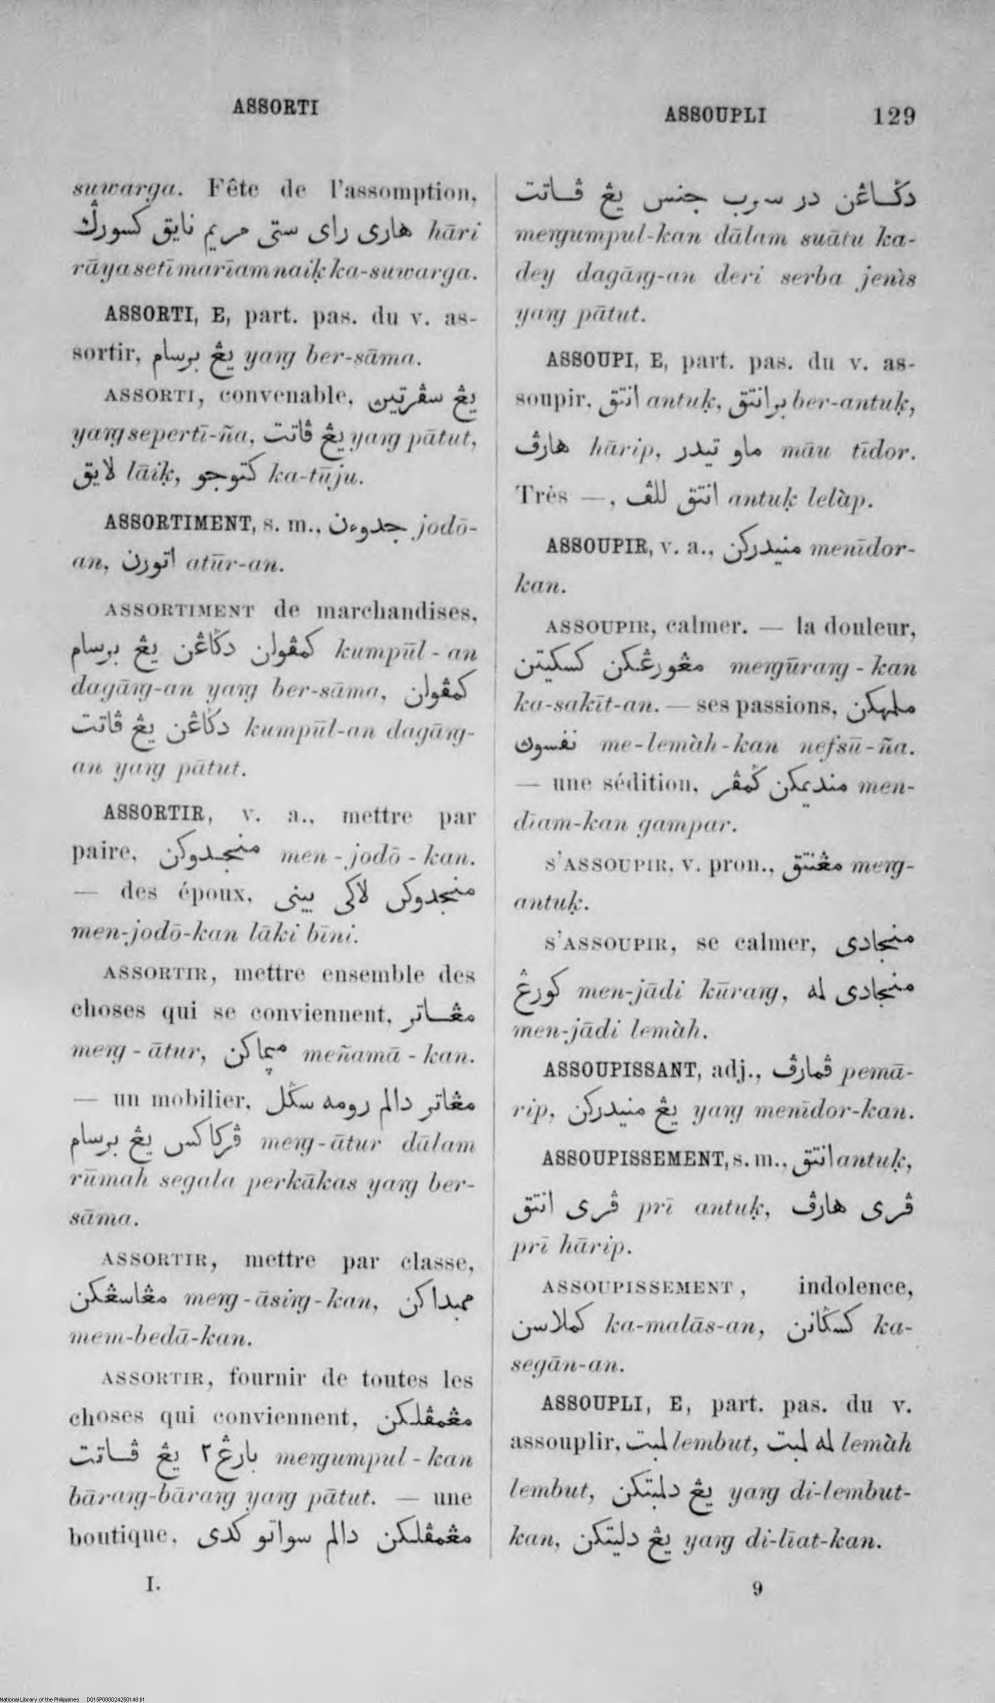 ASSORTI
ASSOUPLI 129
suwarga. Fête de l'assomption,
هاري راي ستي مريم نايق کسورݢ hāri
rāya setī marīam naiḳ ka-suwarga.
ASSORTI, E, part. pas. du v. as-
sortir, يڠ برسام yaŋ ber-sāma.
ASSORTI, convenable, يڠ سڤرتيڽ
yaŋ sepertī-ña, يڠ ڤاتت yaŋ pātut,
لايق lāiḳ, کتوجو ka-tūju.
ASSORTIMENT, s. m., جدوءن jodō-
an, اتورن atūr-an.
ASSORTIMENT de marchandises,
کمڤولن دݢاڠن يڠ برسام kumpūl-an
dagāŋ-an yaŋ ber-sāma, کمڤولن
دݢاڠن يڠ ڤاتت kumpūl-an dagāŋ-
an yaŋ pātut.
ASSORTIR, v. a., mettre par
paire, منجدوکن men-jodō-kan.
— des époux, منجدوکن لاکي بيني
men-jodō-kan lāki bīni.
ASSORTIR, mettre ensemble des
choses qui se conviennent, مڠاتر
meŋ-ātur, ميماکن meñamā-kan.
— un mobilier, مڠاتر دالم رومه سݢل
ڤرکاکس يڠ برسام meŋ-ātur dālam
rūmah segala perkākas yaŋ ber-
sāma.
ASSORTIR, mettre par classe,
مڠاسڠکن meŋ-āsiŋ-kan, ممبداکن
mem-bedā-kan.
ASSORTIR, fournir de toutes les
choses qui conviennent, مڠمڤلکن
بارڠ٢ يڠ ڤاتت meŋumpul-kan
bāraŋ-bāraŋ yaŋ pātut. — une
boutique, مڠمڤلکن دالم سواتو کدي
I.
دݢاڠن در سرب جنس يڠ ڤاتت
meŋumpul-kan dālam suātu ka-
dey dagāŋ-an deri serba jenìs
yaŋ pātut.
ASSOUPI, E, part. pas. du v. as-
soupir, انتق antuḳ, برانتق ber-antuḳ,
هارڤ hārip, ماو تيدر māu tīdor.
Très —, انتق للڤ antuḳ lelàp.
ASSOUPIR, v. a., منيدرکن menīdor-
kan.
ASSOUPIR, calmer. — la douleur,
مڠورڠکن کسکيتن meŋūraŋ-kan
ka-sakīt-an. — ses passions, ملمهکن
نفسوڽ me-lemàh-kan nefsū-ña.
— une sédition, منديمکن ݢمڤر men-
dīam-kan gampar.
S'ASSOUPIR, v. pron., مڠنتق meŋ-
antuḳ.
S'ASSOUPIR, se calmer, منجادي
کورڠ men-jādi kūraŋ, منجادي لمه
men-jādi lemàh.
ASSOUPISSANT, adj., ڤمارڤ pemā-
rip, يڠ منيدرکن yaŋ menīdor-kan.
ASSOUPISSEMENT, s. m., انتق antuḳ,
ڤري انتق prī antuḳ, ڤري هارڤ
prī hārip.
ASSOUPISSEMENT, indolence,
کملاسن ka-malās-an, کسݢانن ka-
segān-an.
ASSOUPLI, E, part. pas. du v.
assouplir, لمبت lembut, لمه لمبت lemàh
lembut, يڠ دلمبتکن yaŋ di-lembut-
kan, يڠ دليتکن yaŋ di-līat-kan.
9
National Library of the Philippines